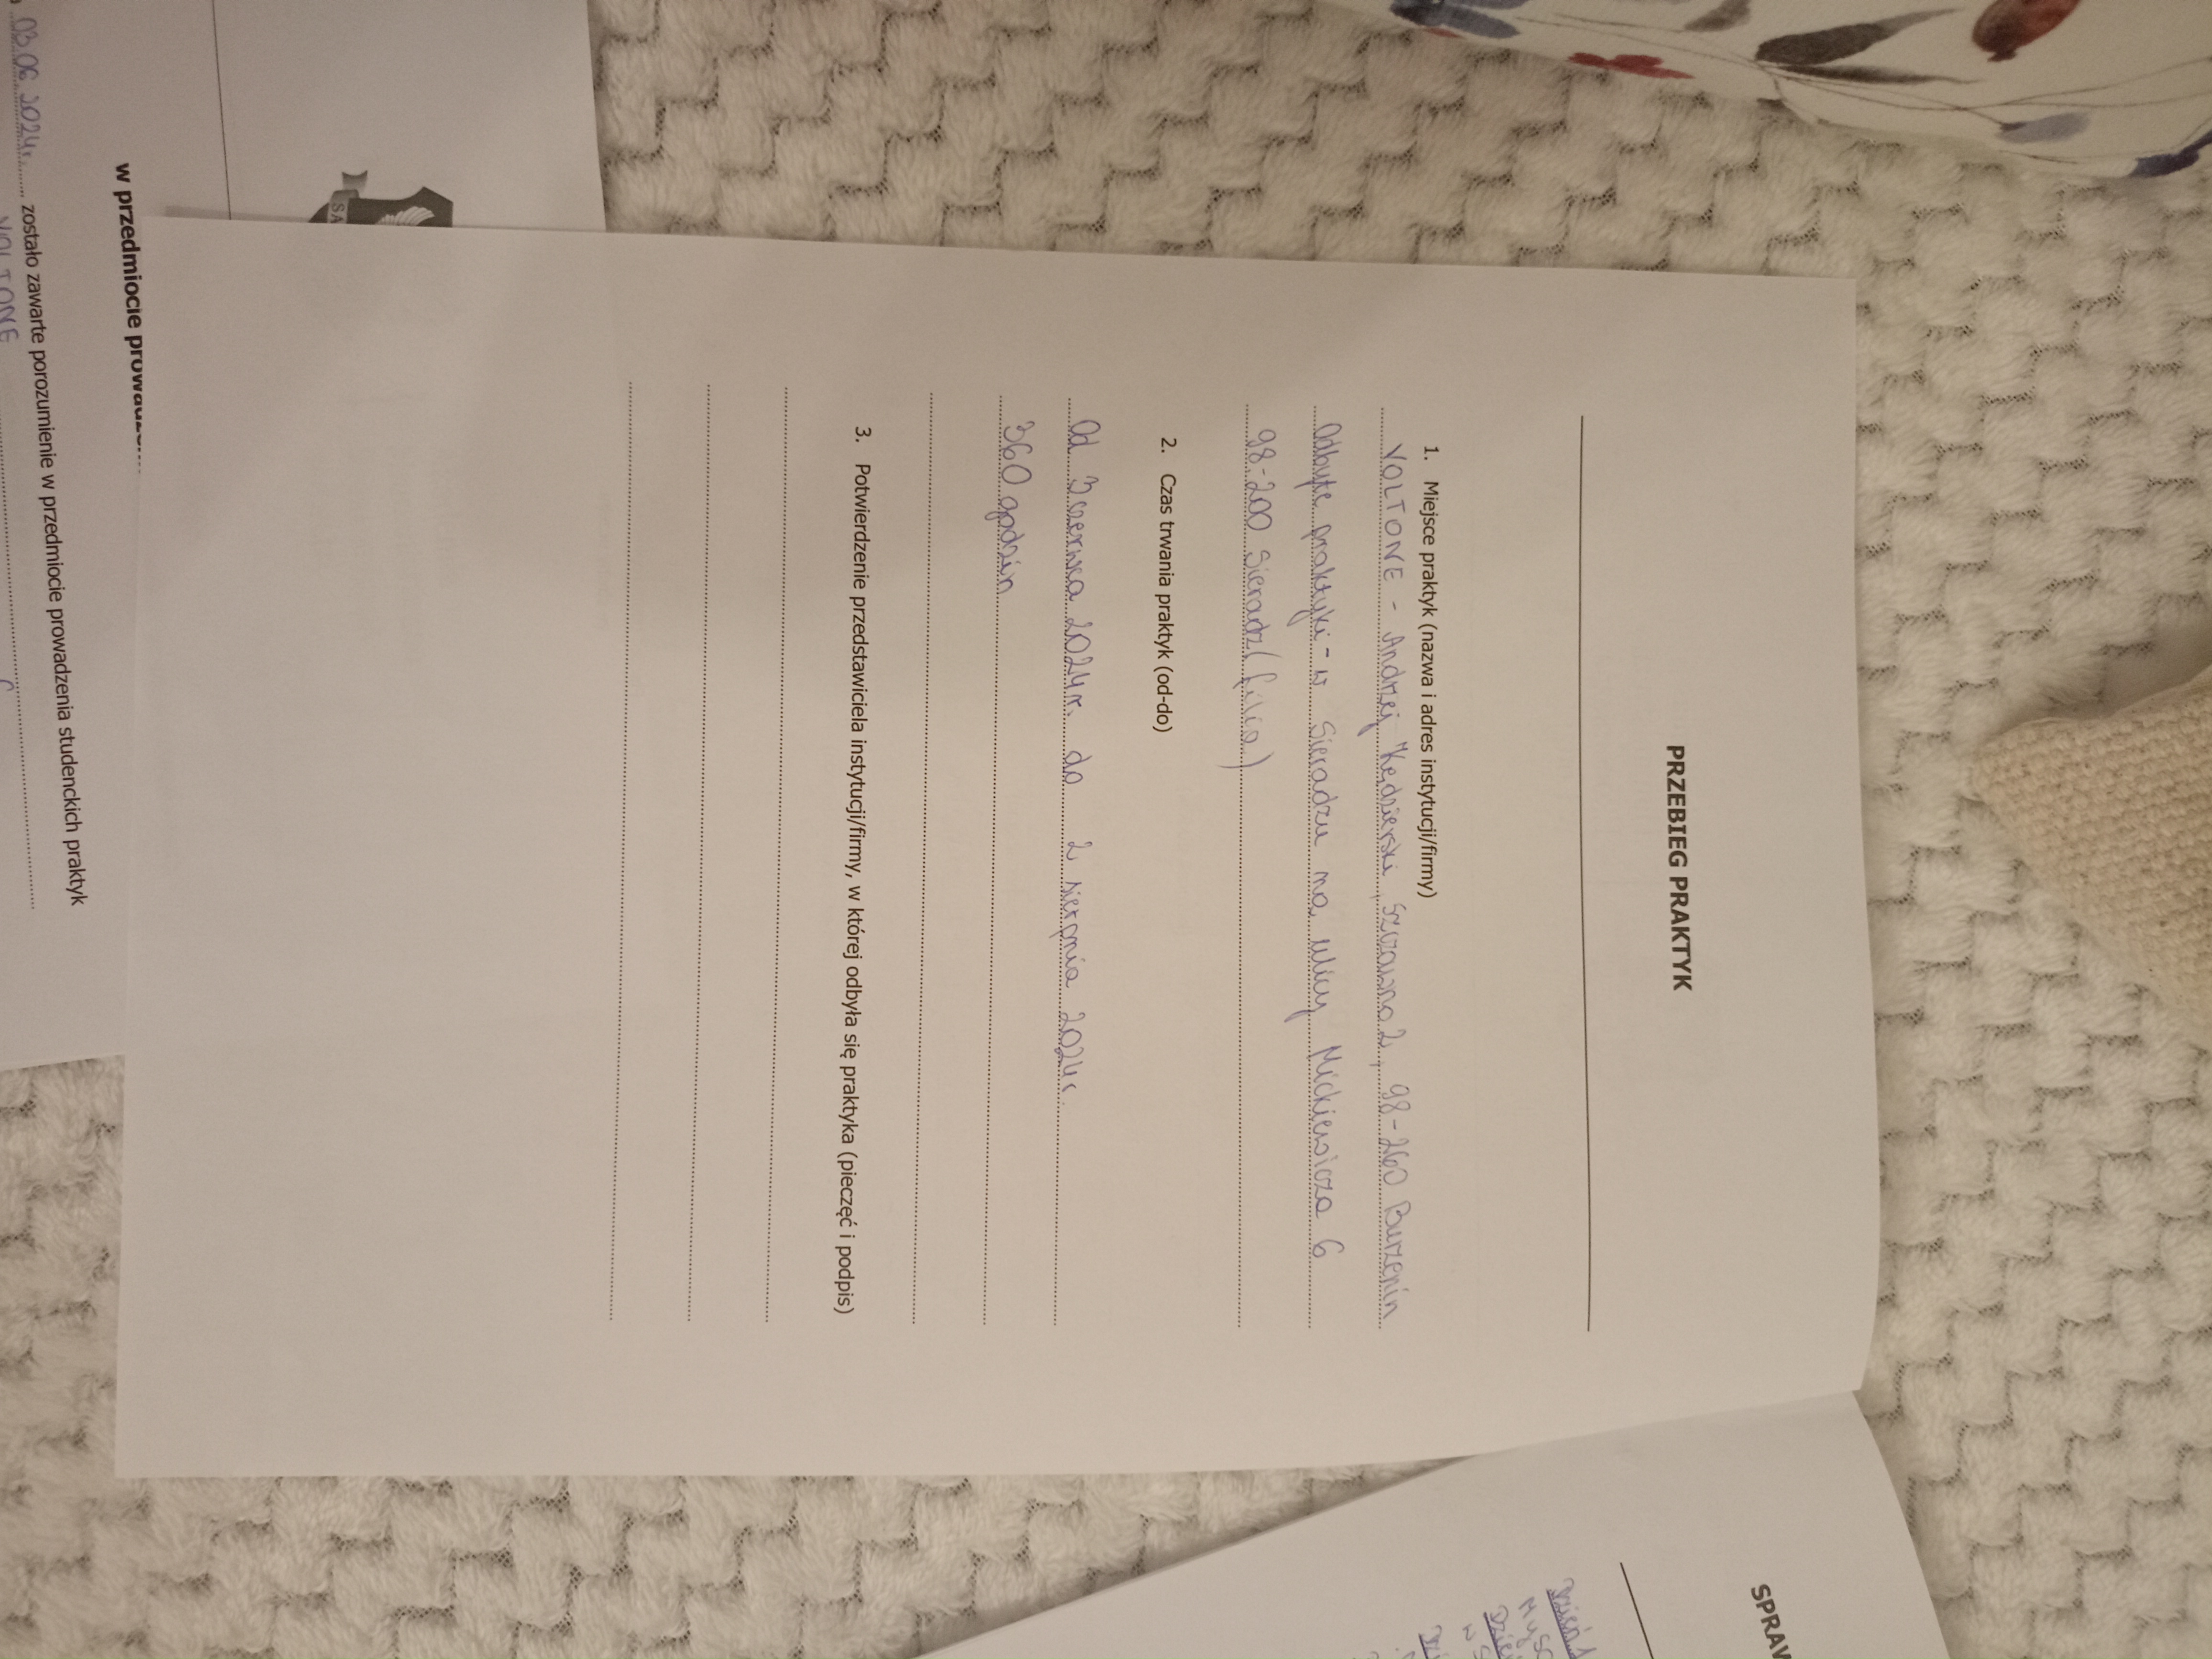 PRZEBIEG PRAKTYK
1. Miejsce praktyk (nazwa i adres instytucji/firmy)
VOLTONE - Andrzej Kędzierski, Szczawno 2, 98-260 Burzenin
Odbyte praktyki - w Sieradzu na ulicy Mickiewicza 6
98-200 Sieradz (filia)
2. Czas trwania praktyk (od-do)
Od 3 czerwca 2024r. do 2 sierpnia 2024r.
360 godzin
3. Potwierdzenie przedstawiciela instytucji/firmy, w której odbyła się praktyka (pieczęć i podpis)
SA
w przedmiocie
03.06.2024r. zostało zawarte porozumienie w przedmiocie prowadzenia studenckich praktyk
VOLTONE